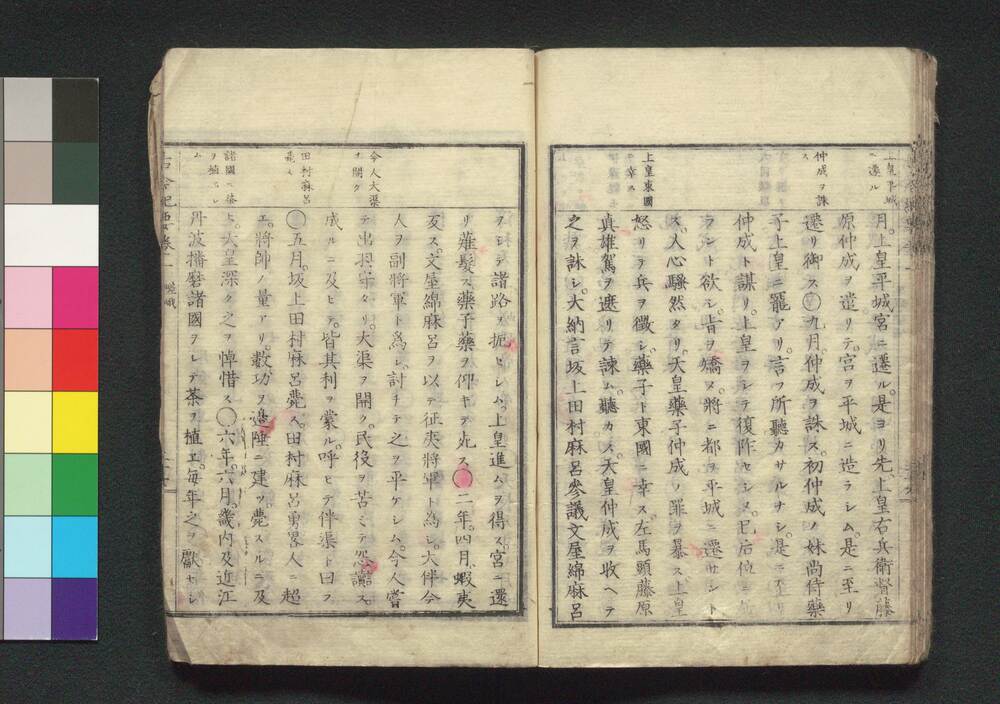 上皇平城
ニ遷ル
仲成ヲ誅
ス
上皇東國
ニ幸ス
月。上皇平城宮ニ遷ル。是ヨリ先。上皇右兵衛督藤
原仲成ヲ遣リテ。宮ヲ平城ニ造ラシム。是ニ至リ
遷リ御ス〇九月仲成ヲ誅ス。初仲成ノ妹尚侍藥
子上皇ニ寵アリ。言フ所聽カサルナシ。是ニ至リ
仲成ト謀リ。上皇ヲシテ復祚セシメ。已后位ニ
ラント欲シ。旨ヲ矯メ。將ニ都ヲ平城ニ遷サント
ス。人心騷然タリ。天皇藥子仲成ノ罪ヲ暴ス。上皇
怒リテ兵ヲ徴シ。藥子ト東國ニ幸ス。左馬頭藤原
真雄駕ヲ遮リテ諫ム。聽カス。天皇仲成ヲ收ヘテ
之ヲ誅シ。大納言坂上田村麻呂參議文屋綿麻呂
令人大渠
ヲ開ク
田村麻呂
薨ス
諸國ニ茶
ヲ植エシ
ム
ヲシテ諸路ヲ扼セシム。上皇進ムヲ得ス。宮ニ還
リ薙髮ス。藥子藥ヲ仰キテ死ス〇二年。四月。蝦夷
叛ス。文屋綿麻呂ヲ以テ征夷將軍ト為シ。大伴今
人ヲ副將軍ト爲シ。討チテ之ヲ平ケシム。今人嘗
テ出羽守タリ。大渠ヲ開ク。民役ヲ苦ミテ怨讟ス。
成ルニ及ヒテ。皆其利ヲ蒙ル。呼ヒテ伴渠ト曰フ
〇五月。坂上田村麻呂薨ス。田村麻呂勇畧人ニ超
エ。將帥ノ量アリ。數功ヲ邊陲ニ建ツ。薨スルニ及
ヒ。天皇深ク之ヲ悼惜ス〇六年。六月。畿内及近江
丹波播磨諸國ヲシテ茶ヲ植エ。毎年之ヲ獻セシ